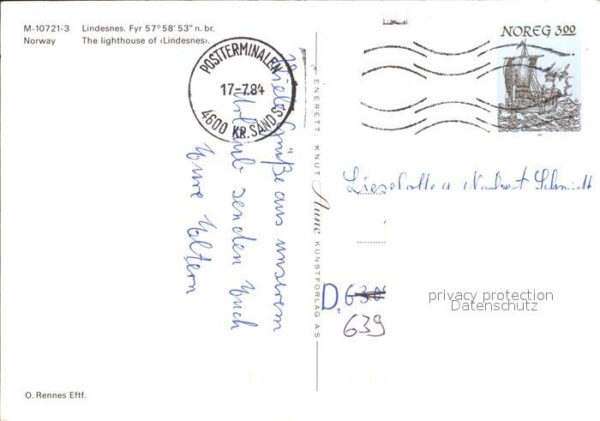 M-10721-3 Lindesnes. Fyr 57°58'53" n. br.
Norway The lighthouse of ‹Lindesnes›.
POSTTERMINALEN
17-7.84
4600 KR.SAND S
NOREG 3,00
Viele Grüße aus unserem
Urlaub senden Euch
Eure Eltern
ENERETT: KNUT Aune KUNSTFORLAG AS
Lieselotte u Norbert Schmidt
D.
639
privacy protection
Datenschutz
O. Rennes Eftf.